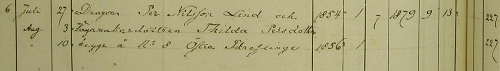 6 Juli 27 Dragon Per Nilsson Lind och 1854 1 7 1879 9 13 227
Aug 3 Thilda Persdotter
" 10 begge å No 8 Östra 1856 1 227